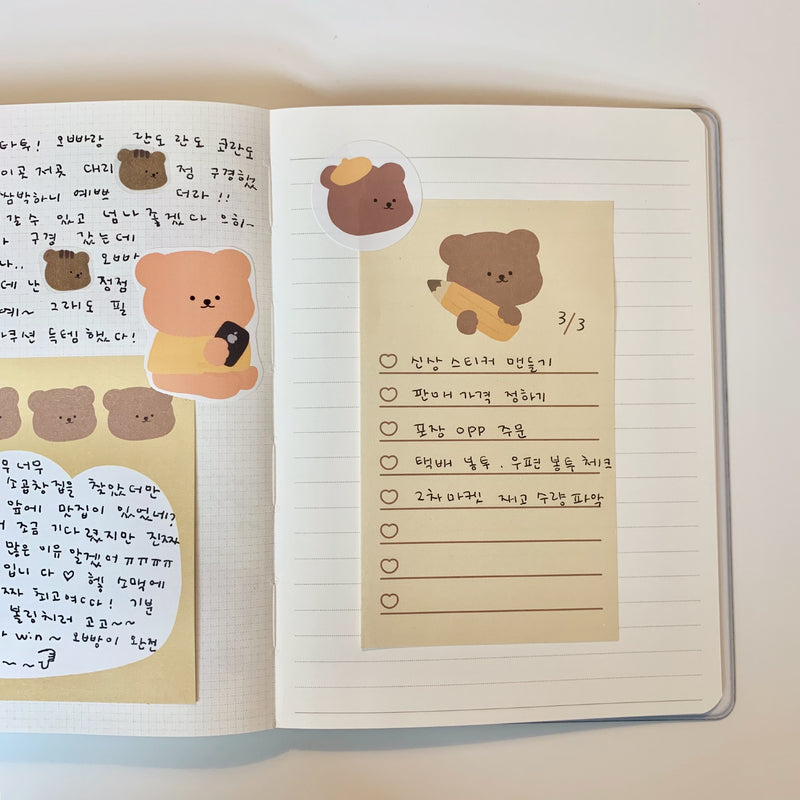 타투! 오빠랑 란도란도 코란도
이곳저곳 대리 점 구경했
깜박하니 예쁘 더라!!
갈 수 있고 넘나 좋겠다 으히~
구경 갔는데
나.. 오빠
데 난 점점
예~ 그래도 필
쿠션 득템했다!
무너무
소곱창집을 찾았더만
앞에 맛집이 있었네?
조금 기다렸지만 진짜
많은 이유 알겠어 ㅠㅠㅠㅠ
입니다♡ 헿 소맥에
짜 최고여따! 기분
볼링치러 고고~~
win~ 오빵이 완전
~~
3/3
신상 스티커 만들기
판매 가격 정하기
포장 OPP 주문
택배 봉투. 우편 봉투 체크
2차 마켓 재고 수량 파악